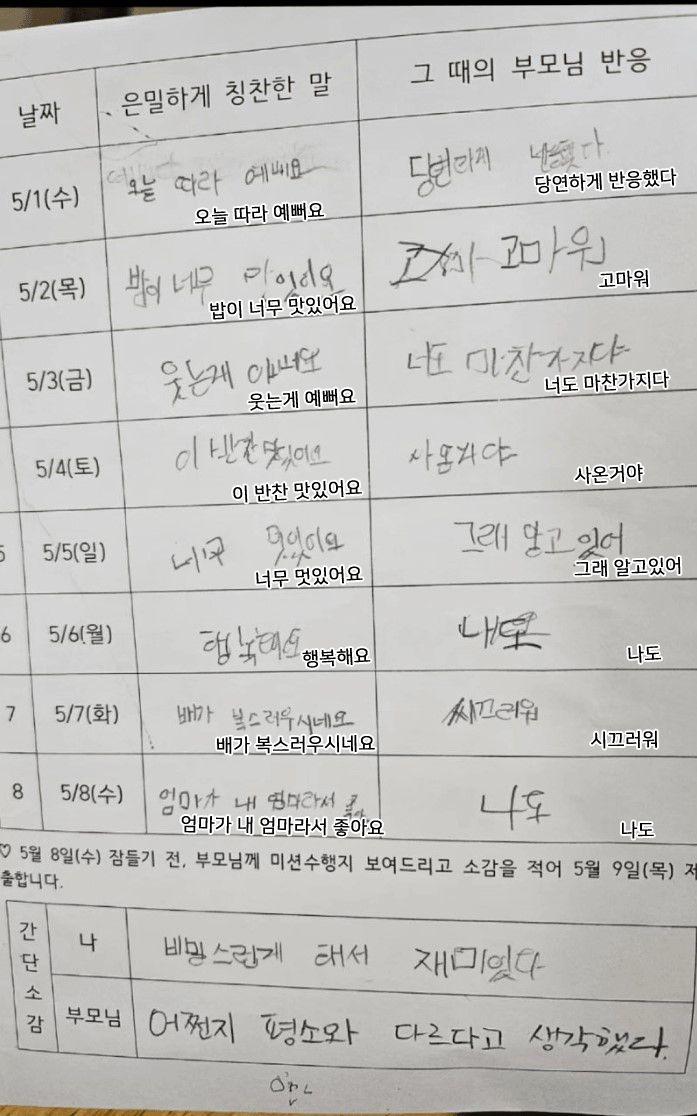 날짜 은밀하게 칭찬한 말 그 때의 부모님 반응
5/1(수) 오늘 따라 예뻐요 당연하게
오늘 따라 예뻐요 당연하게 반응했다
5/2(목) 밥이 너무 맛있어요 고마워
밥이 너무 맛있어요 고마워
5/3(금) 웃는게 예뻐요 너도 마찬가지다
웃는게 예뻐요 너도 마찬가지다
5/4(토) 이 반찬 맛있어요 사온거야
이 반찬 맛있어요 사온거야
5 5/5(일) 너무 멋있어요 그래 알고 있어
너무 멋있어요 그래 알고있어
6 5/6(월) 행복해요
행복해요 나도
7 5/7(화) 배가 복스러우시네요 씨끄러워
배가 복스러우시네요 시끄러워
8 5/8(수) 엄마가 내 엄마라서 좋아 나도
엄마가 내 엄마라서 좋아요 나도
♡ 5월 8일(수) 잠들기 전, 부모님께 미션수행지 보여드리고 소감을 적어 5월 9일(목) 제
출합니다.
간단소감
나 비밀스럽게 해서 재미있다
부모님 어쩐지 평소와 다르다고 생각했다.